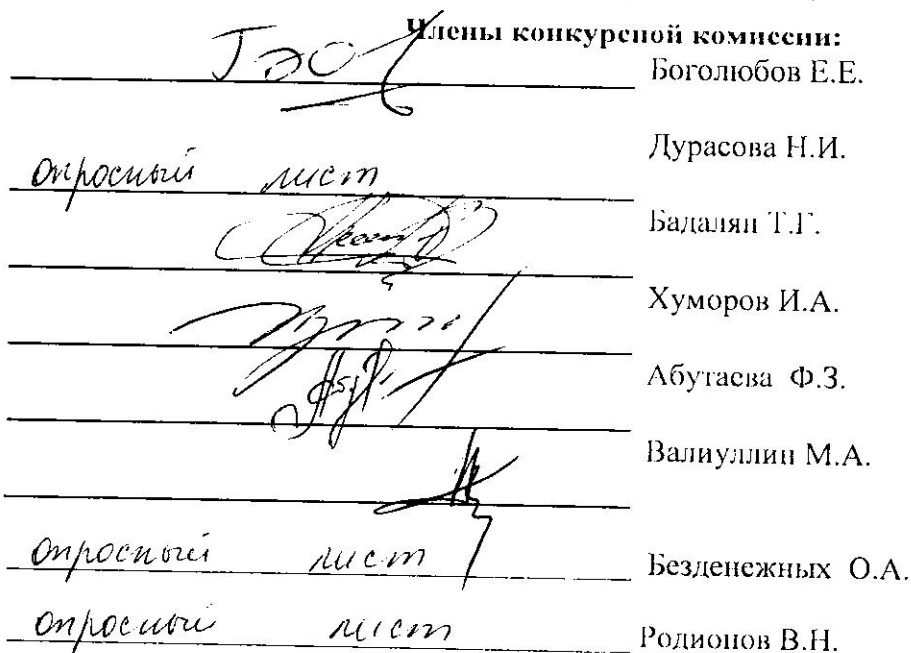 Члены конкурсной комиссии:
Боголюбов Е.Е.
Дурасова Н.И.
опросный лист
Бадалян Т.Г.
Хуморов И.А.
Абутаева Ф.З.
Валиуллин М.А.
опросный лист Безденежных О.А.
опросный лист Родионов В.Н.